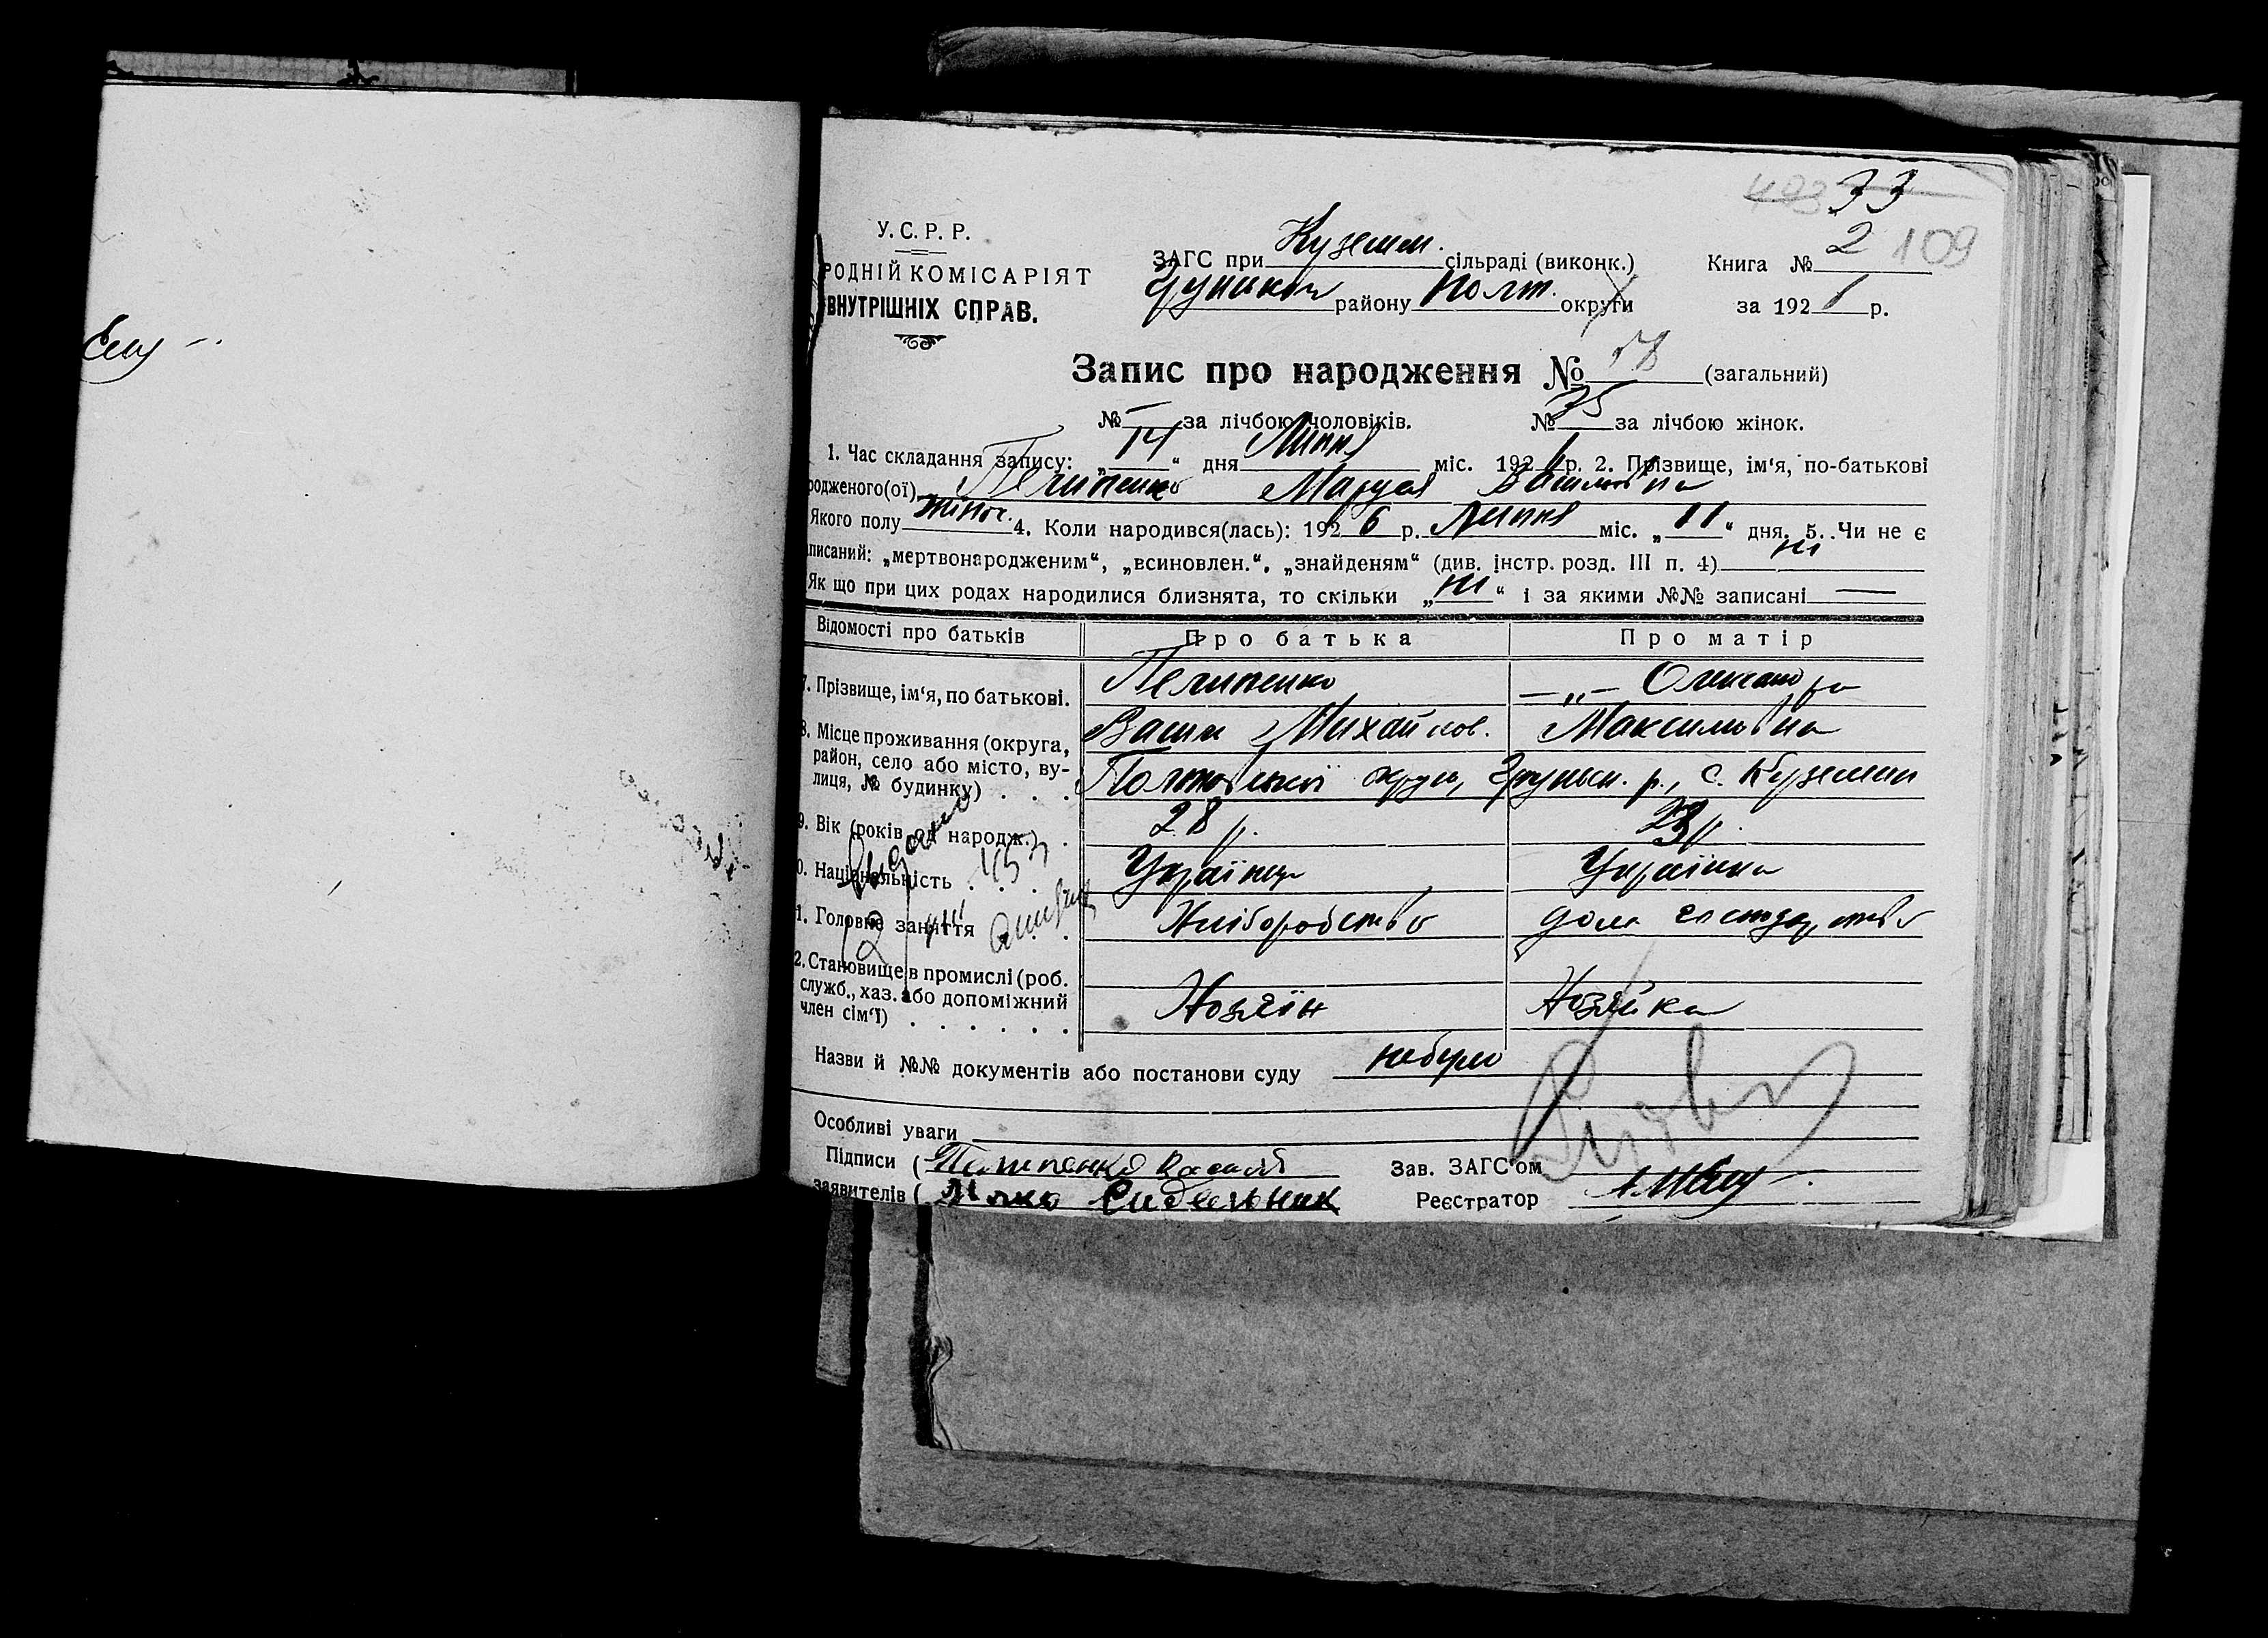 У. С. Р. Р.
РОДНІЙ КОМІСАРІЯТ
ВНУТРІШНІХ СПРАВ.
33
ЗАГС при Куземн. сільраді (виконк.)
району Полт. округи
Книга № 2 109
за 1926 р.
Запис про народження № 58 (загальний)
№ — за лічбою чоловіків. № 25 за лічбою жінок.
1. Час складання запису: „14“ дня Липня міс. 1926 р. 2. Прізвище, ім‘я, по-батькові
родженого(ої) Пелипенко Маруся Василівна
Якого полу жіноч. 4. Коли народився(лась): 1926 р. Липня міс. „11“ дня. 5. Чи не є
писаний: „мертвонародженим“, „всиновлен.“, „знайденям“ (див. інстр. розд. III п. 4) ні
Як що при цих родах народилися близнята, то скільки „ні“ і за якими №№ записані —
Відомості про батьків
Про батька
Про матір
7. Прізвище, ім‘я, по батькові.
Пелипенко
—„— Олександра
Васил Михайлов.
Максимовна
8. Місце проживання (округа,
район, село або місто, ву-
лиця, № будинку) . . .
Полтавської округи, Грунськ. р., с. Куземин
9. Вік (років од народж.) .
28 р.
23 р.
0. Національність . . .
Українець
Українка
1. Головне заняття . . .
Хліборобство
дом. господарство
2. Становище в промислі (роб.
служб., хаз. або допоміжний
член сім‘ї) . . . . . .
Хозяїн
Хозяйка
Назви й №№ документів або постанови суду небуло
Особливі уваги
Підписи ( Пелипенко Василь
заявителів ( Сидельник
Зав. ЗАГС‘ом
Реєстратор